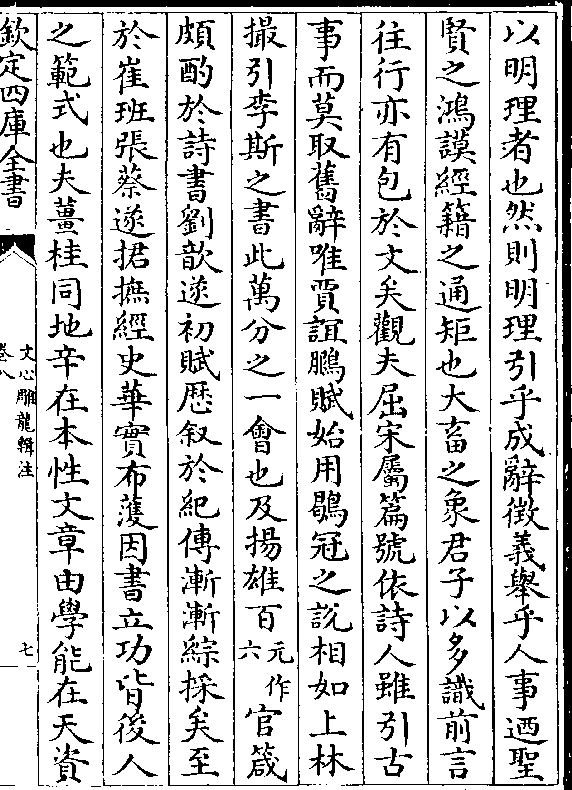 以明理者也然則明理引乎成辭徴義舉乎人事迺聖
賢之鴻謨經籍之通矩也大畜之象君子以多識前言
往行亦有包於文矣觀夫屈宋屬篇號依詩人雖引古
事而莫取舊辭唯賈誼鵬賦始用鶡冠之說相如上林
撮引李斯之書此萬分之一會也及揚雄百元作六官箴
頗酌於詩書劉歆遂初賦歴叙於紀傳漸漸綜採矣至
於崔班張蔡遂捃摭經史華實布濩因書立功皆後人
之範式也夫薑桂同地辛在本性文章由學能在天資
欽定四庫全書
文心雕龍輯注
卷八
七